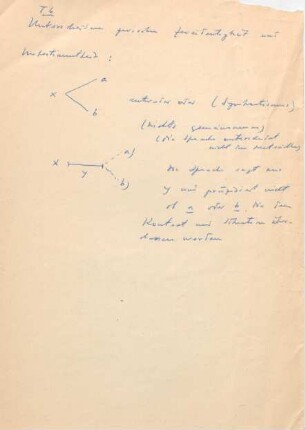 T6
Unterscheidung zwischen Mehrdeutigkeit und
Unbestimmtheit:
a
x
b
entweder oder
(nichts gemeinsames)
(die Sprache unterscheidet
nicht im
a)
x
y
b)
Die Sprache sagt nur
y und präzisiert nicht
ob a oder b. Die dem
Kontext und Situation über-
lassen werden